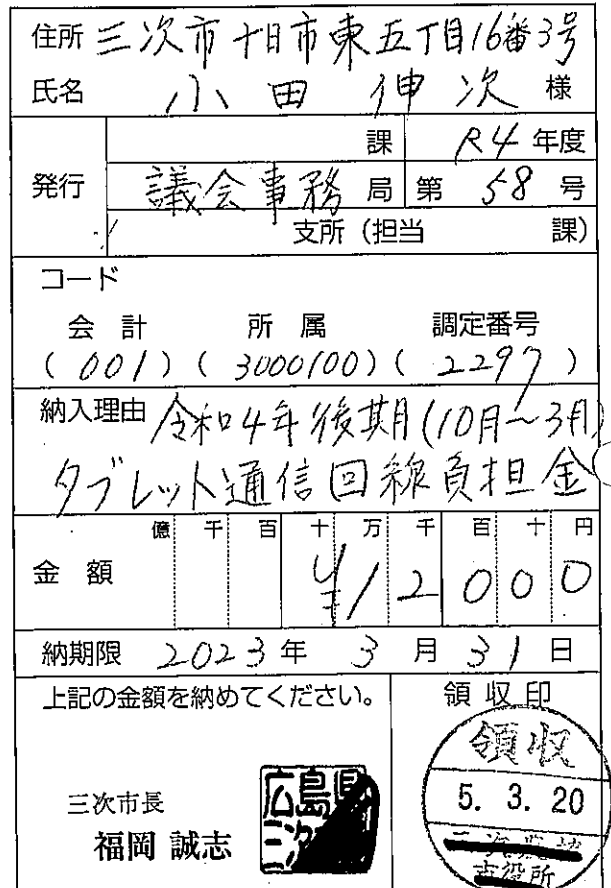 住所 三次市十日市東五丁目16番3号
氏名 小田伸次 様
発行
課 R4 年度
議会事務 局 第 58 号
支所 (担当 課)
コード
会計 所属 調定番号
(001) (3000100) (2297)
納入理由 令和4年後期(10月〜3月)
タブレット通信回線負担金
億 千 百 十 万 千 百 十 円
金額 ¥12000
納期限 2023年 3月 31日
上記の金額を納めてください。
領収印
領収
5. 3. 20
市役所
三次市長
福岡 誠志
広島県
三次